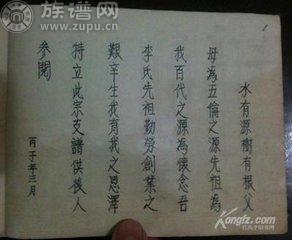 水有源樹有根父
母為五倫之源先祖為
我百代之源為懷念吾
李氏先祖勤勞創業之
艱辛生我育我之恩澤
特立此宗支譜供後人
參閱
丙子年三月
1
族谱网
www.zupu.cn
孔夫子旧书网
KONGFZ.COM